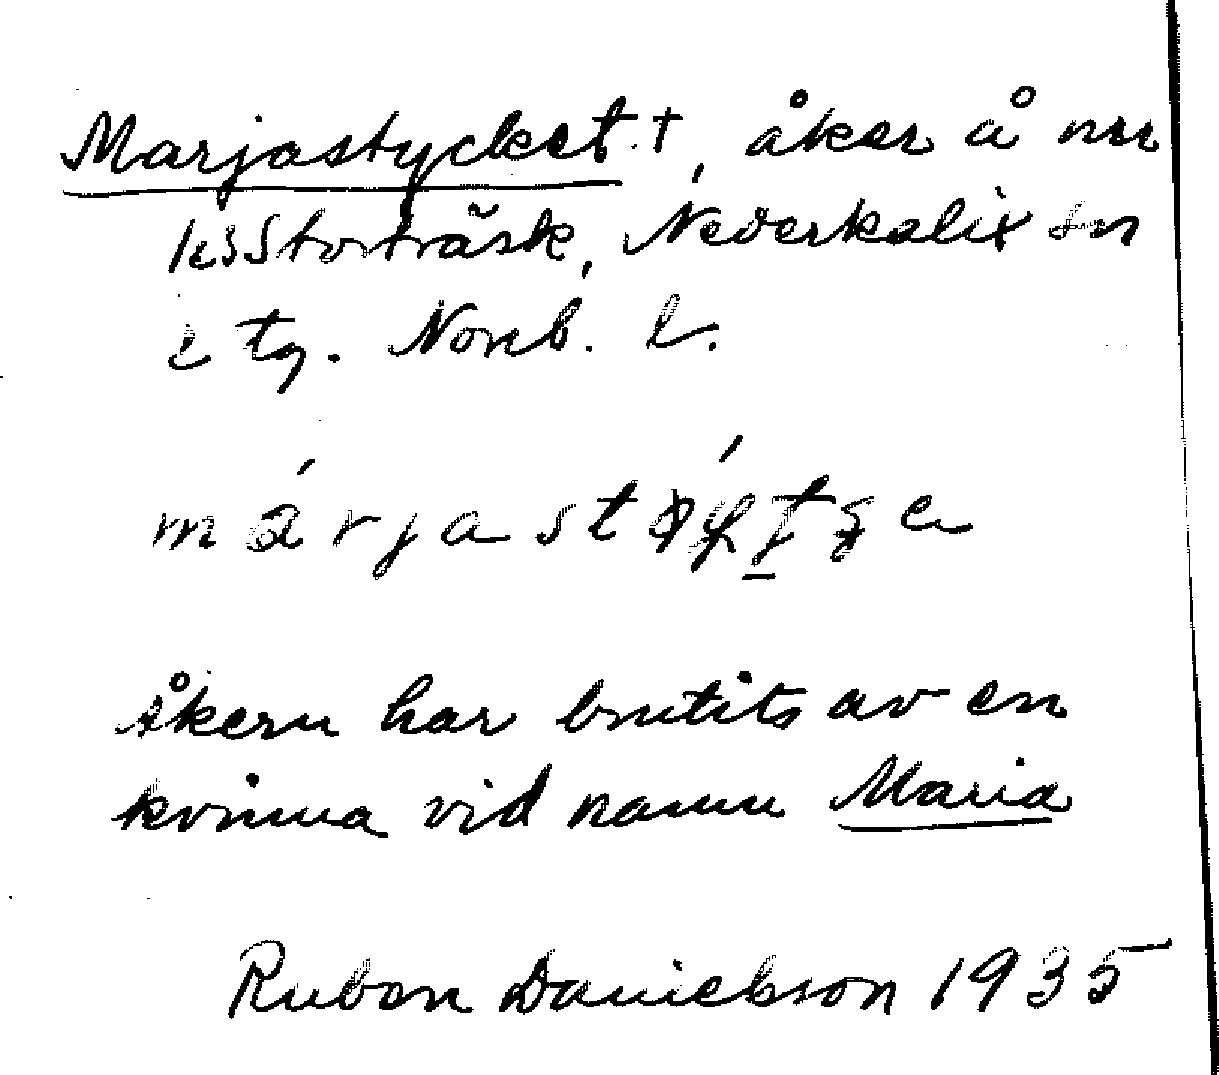 Marjastycket †, åker å nr
13 Storträsk, Nederkalix sn
o tg. Norrb. l.
åkern har brutits av en
kvinna vid namn Maria
Ruben Danielsson 1935